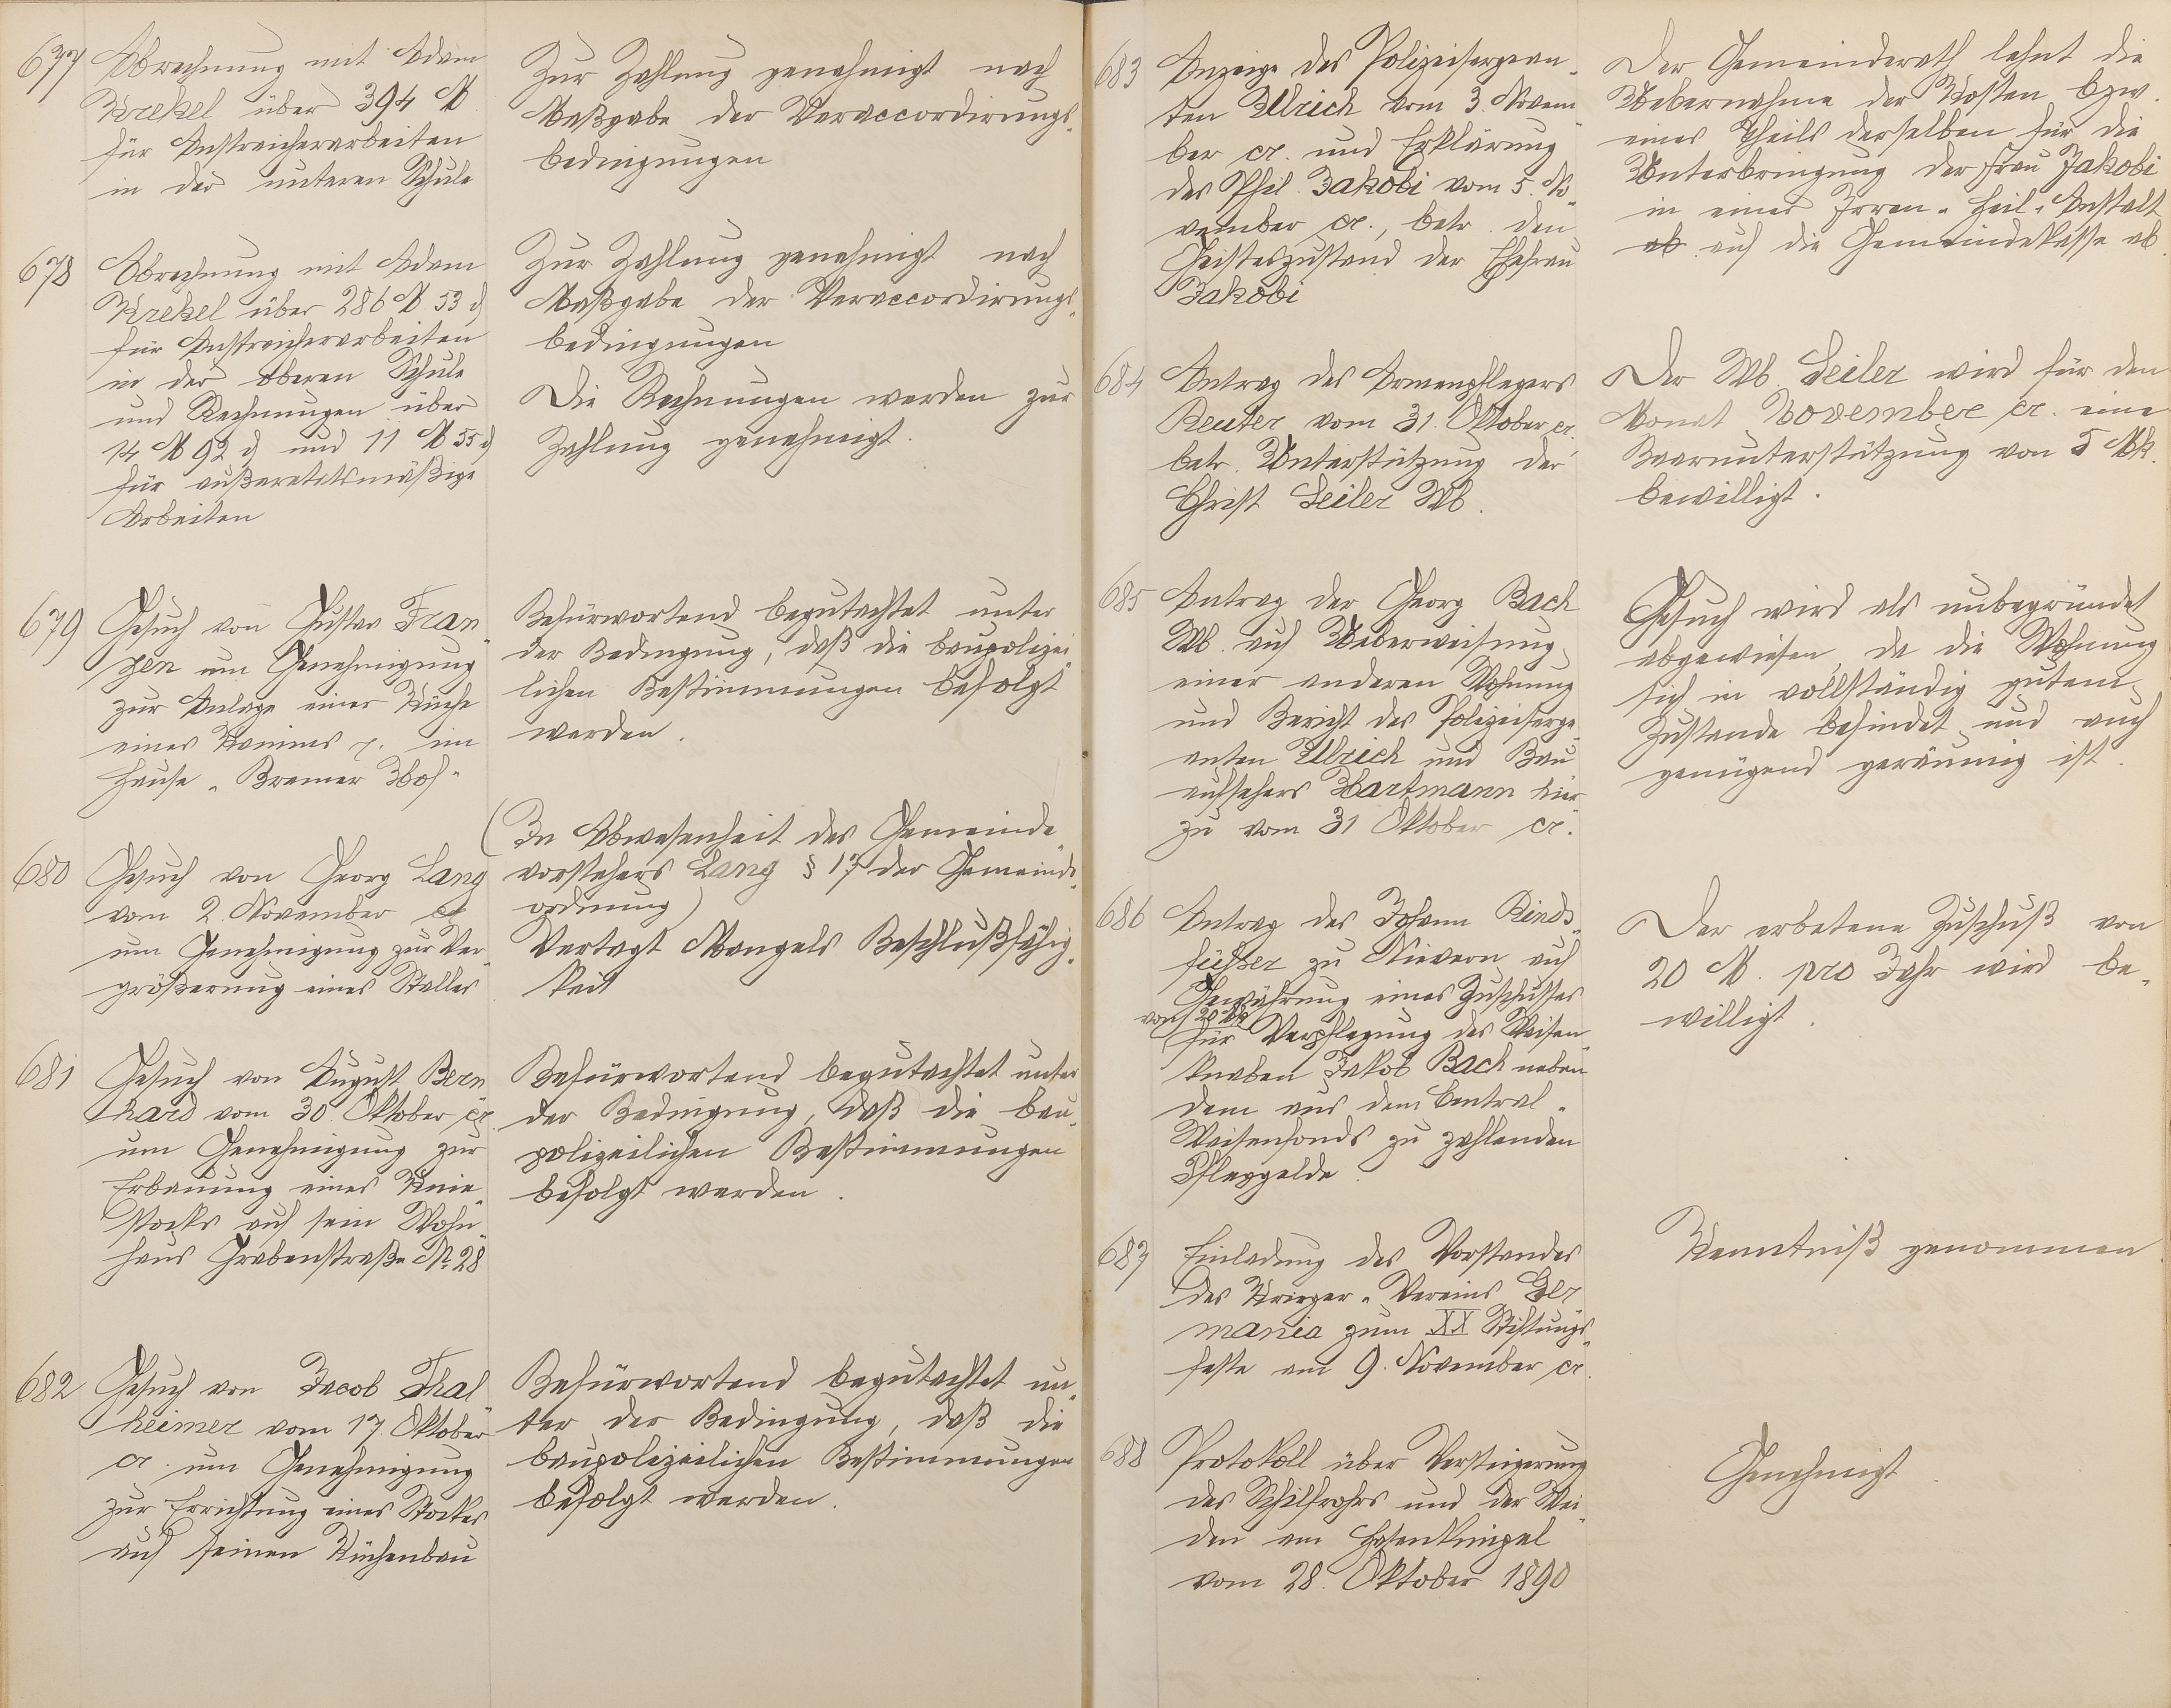 677
Abrechnung mit Adam
Krekel über 394 M
für Anstreicherarbeiten
in der unteren Schule
Zur Zahlung genehmigt nach
Maßgabe der Veraccordirungs-
bedingungen
678
Abrechnung mit Adam
Krekel über 286 M 53 ₰
für Anstreicherarbeiten
in der oberen Schule
und Rechnungen über
14 M 92 ₰ und 11 M 55 ₰
für außeretatsmäßige
Arbeiten
Zur Zahlung genehmigt nach
Maßgabe der Veraccordirungs-
bedingungen
Die Rechnungen werden zur
Zahlung genehmigt.
679
Gesuch von Gustav Fran
zen um Genehmigung
zur Anlage einer Küche
eines Kamins p. im
Hause "Bremer Hof"
Befürwortend begutachtet unter
der Bedingung, daß die baupolizei
lichen Bestimmungen befolgt
werden.
680
Gesuch von Georg Lang
vom 2. November cr
um Genehmigung zur Ver
größerung eines Stalles
(In Abwesenheit des Gemeinde
vorstehers Lang § 17 der Gemeinde-
ordnung)
Vertagt Mangels Beschlußfähig-
keit
681
Gesuch von August Bern
hard vom 30. Oktober cr.
um Genehmigung zur
Erbauung eines Knie
stocks auf sein Wohn
haus Grabenstraße No 28
Befürwortend begutachtet unter
der Bedingung, daß die bau-
polizeilichen Bestimmungen
befolgt werden.
682
Gesuch von Jacob Thal
heimer vom 17. Oktober
cr. um Genehmigung
zur Errichtung eines Stockes
auf seinen Küchenbau
Befürwortend begutachtet un-
ter der Bedingung, daß die
baupolizeilichen Bestimmungen
befolgt werden.
683
Anzeige des Polizeisergean-
ten Ullrich vom 3. Novem
ber cr. und Erklärung
des Phil. Jakobi vom 5. No-
vember cr., betr. den
Geisteszustand der Ehefrau
Jakobi
Der Gemeinderath lehnt die
Uebernahme der Kosten bzw.
eines Theils derselben für die
Unterbringung der Frau Jakobi
in einer Irren-Heil-Anstalt
ab auf die Gemeindekasse ab.
684
Antrag des Armenpflegers
Reuter vom 31. Oktober cr.
betr. Unterstützung der
Christ Seiler Wb.
Der Wb. Seiler wird für den
Monat November cr. eine
Baarunterstützung von 5 Mk.
bewilligt.
685
Antrag der Georg Bach
Wb. auf Ueberweisung
einer anderen Wohnung
und Bericht des Polizeiserge
anten Ullrich und Bau
aufsehers Hartmann hier
zu vom 31 Oktober cr.
Gesuch wird als unbegründet
abgewiesen, da die Wohnung
sich in vollständig gutem
Zustande befindet und auch
genügend geräumig ist.
686
Antrag des Johann Rinds-
füßer zu Nievern auf
Gewährung eines Zuschusses
von 20 Mk
für Verpflegung des Waisen
knaben Jakob Bach neben
dem aus dem Central-
Waisenfonds zu zahlenden
Pflegegelde.
Der erbetene Zuschuß von
20 M. pro Jahr wird be-
willigt.
687
Einladung des Vorstandes
des Krieger-Vereins Ger
mania zum XX Stiftungs-
feste am 9. November cr.
Kenntniß genommen
688
Protokoll über Versteigerung
des Schilfrohrs und der Wei
den am Hasenkümpel
vom 28. Oktober 1890
Genehmigt.